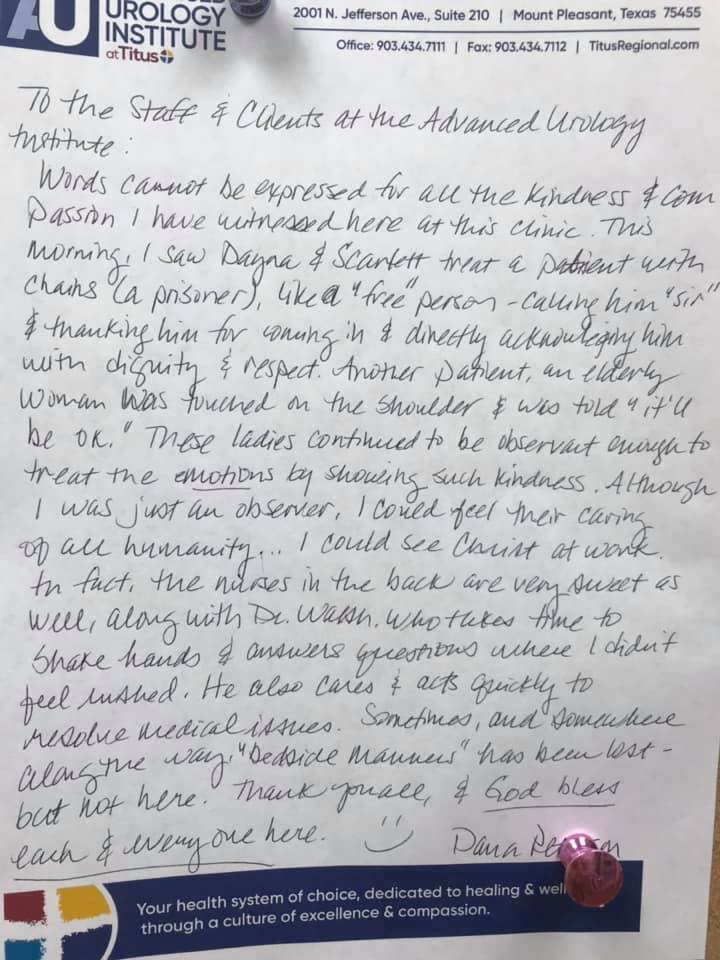 AU UROLOGY
INSTITUTE
at Titus
2001 N. Jefferson Ave., Suite 210 | Mount Pleasant, Texas 75455
Office: 903.434.7111 | Fax: 903.434.7112 | TitusRegional.com
To the Staff & Clients at the Advanced Urology
Institute:
Words cannot be expressed for all the kindness & com
passion I have witnessed here at this clinic. This
morning, I saw Dayna & Scarlett treat a patient with
chains (a prisoner), like a "free" person - calling him "sir"
& thanking him for coming in & directly acknowleging him
with dignity & respect. Another patient, an elderly
woman was touched on the shoulder & was told "it'll
be ok." These ladies continued to be observant enough to
treat the emotions by showing such kindness. Although
I was just an observer, I could feel their caring
of all humanity... I could see Christ at work.
In fact, the nurses in the back are very sweet as
well, along with Dr. Walsh, who takes time to
shake hands & answers questions where I didn't
feel rushed. He also cares & acts quickly to
resolve medical issues. Sometimes, and somewhere
along the way, "bedside manners" has been lost -
but not here. Thank you all, & God bless
each & every one here. Dana
Your health system of choice, dedicated to healing &
through a culture of excellence & compassion.